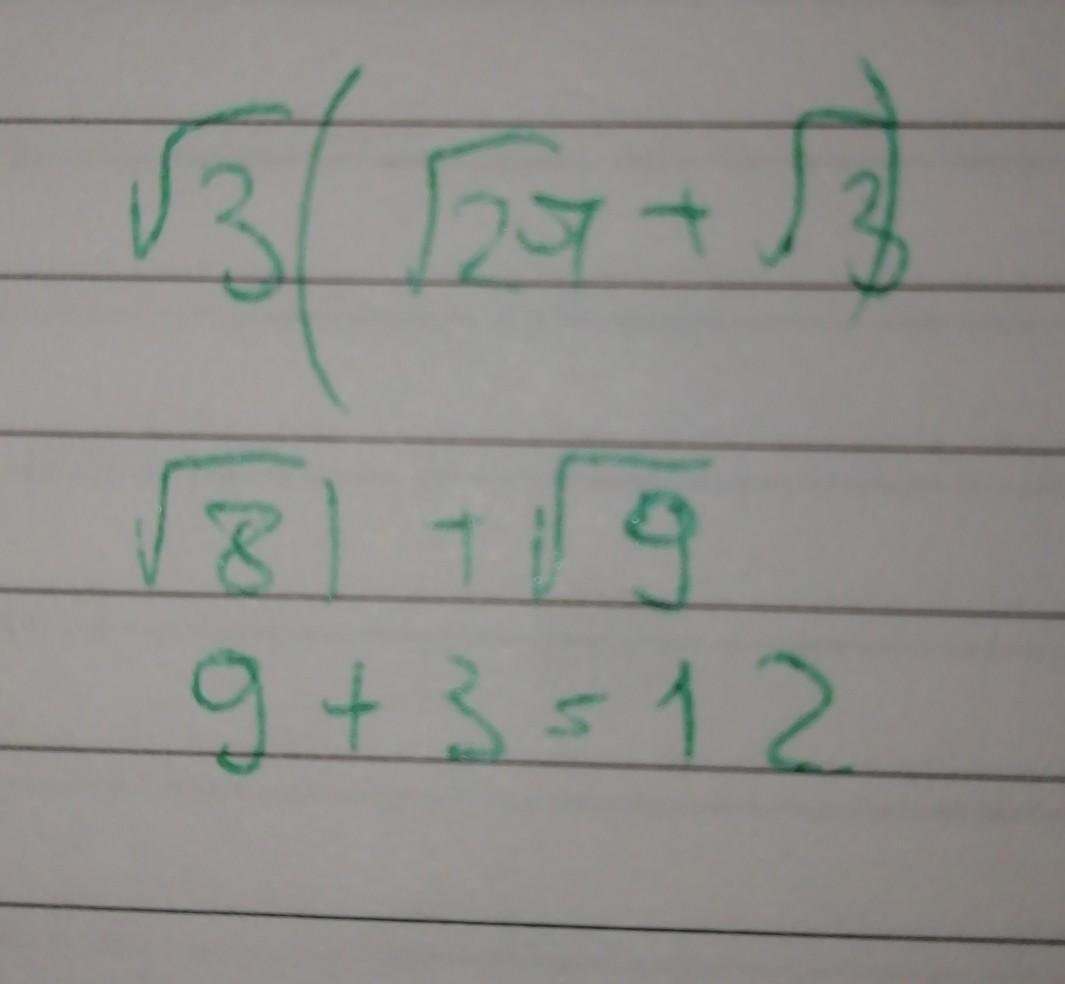 √3(√27 + √3)
√81 + √9
9 + 3 = 12